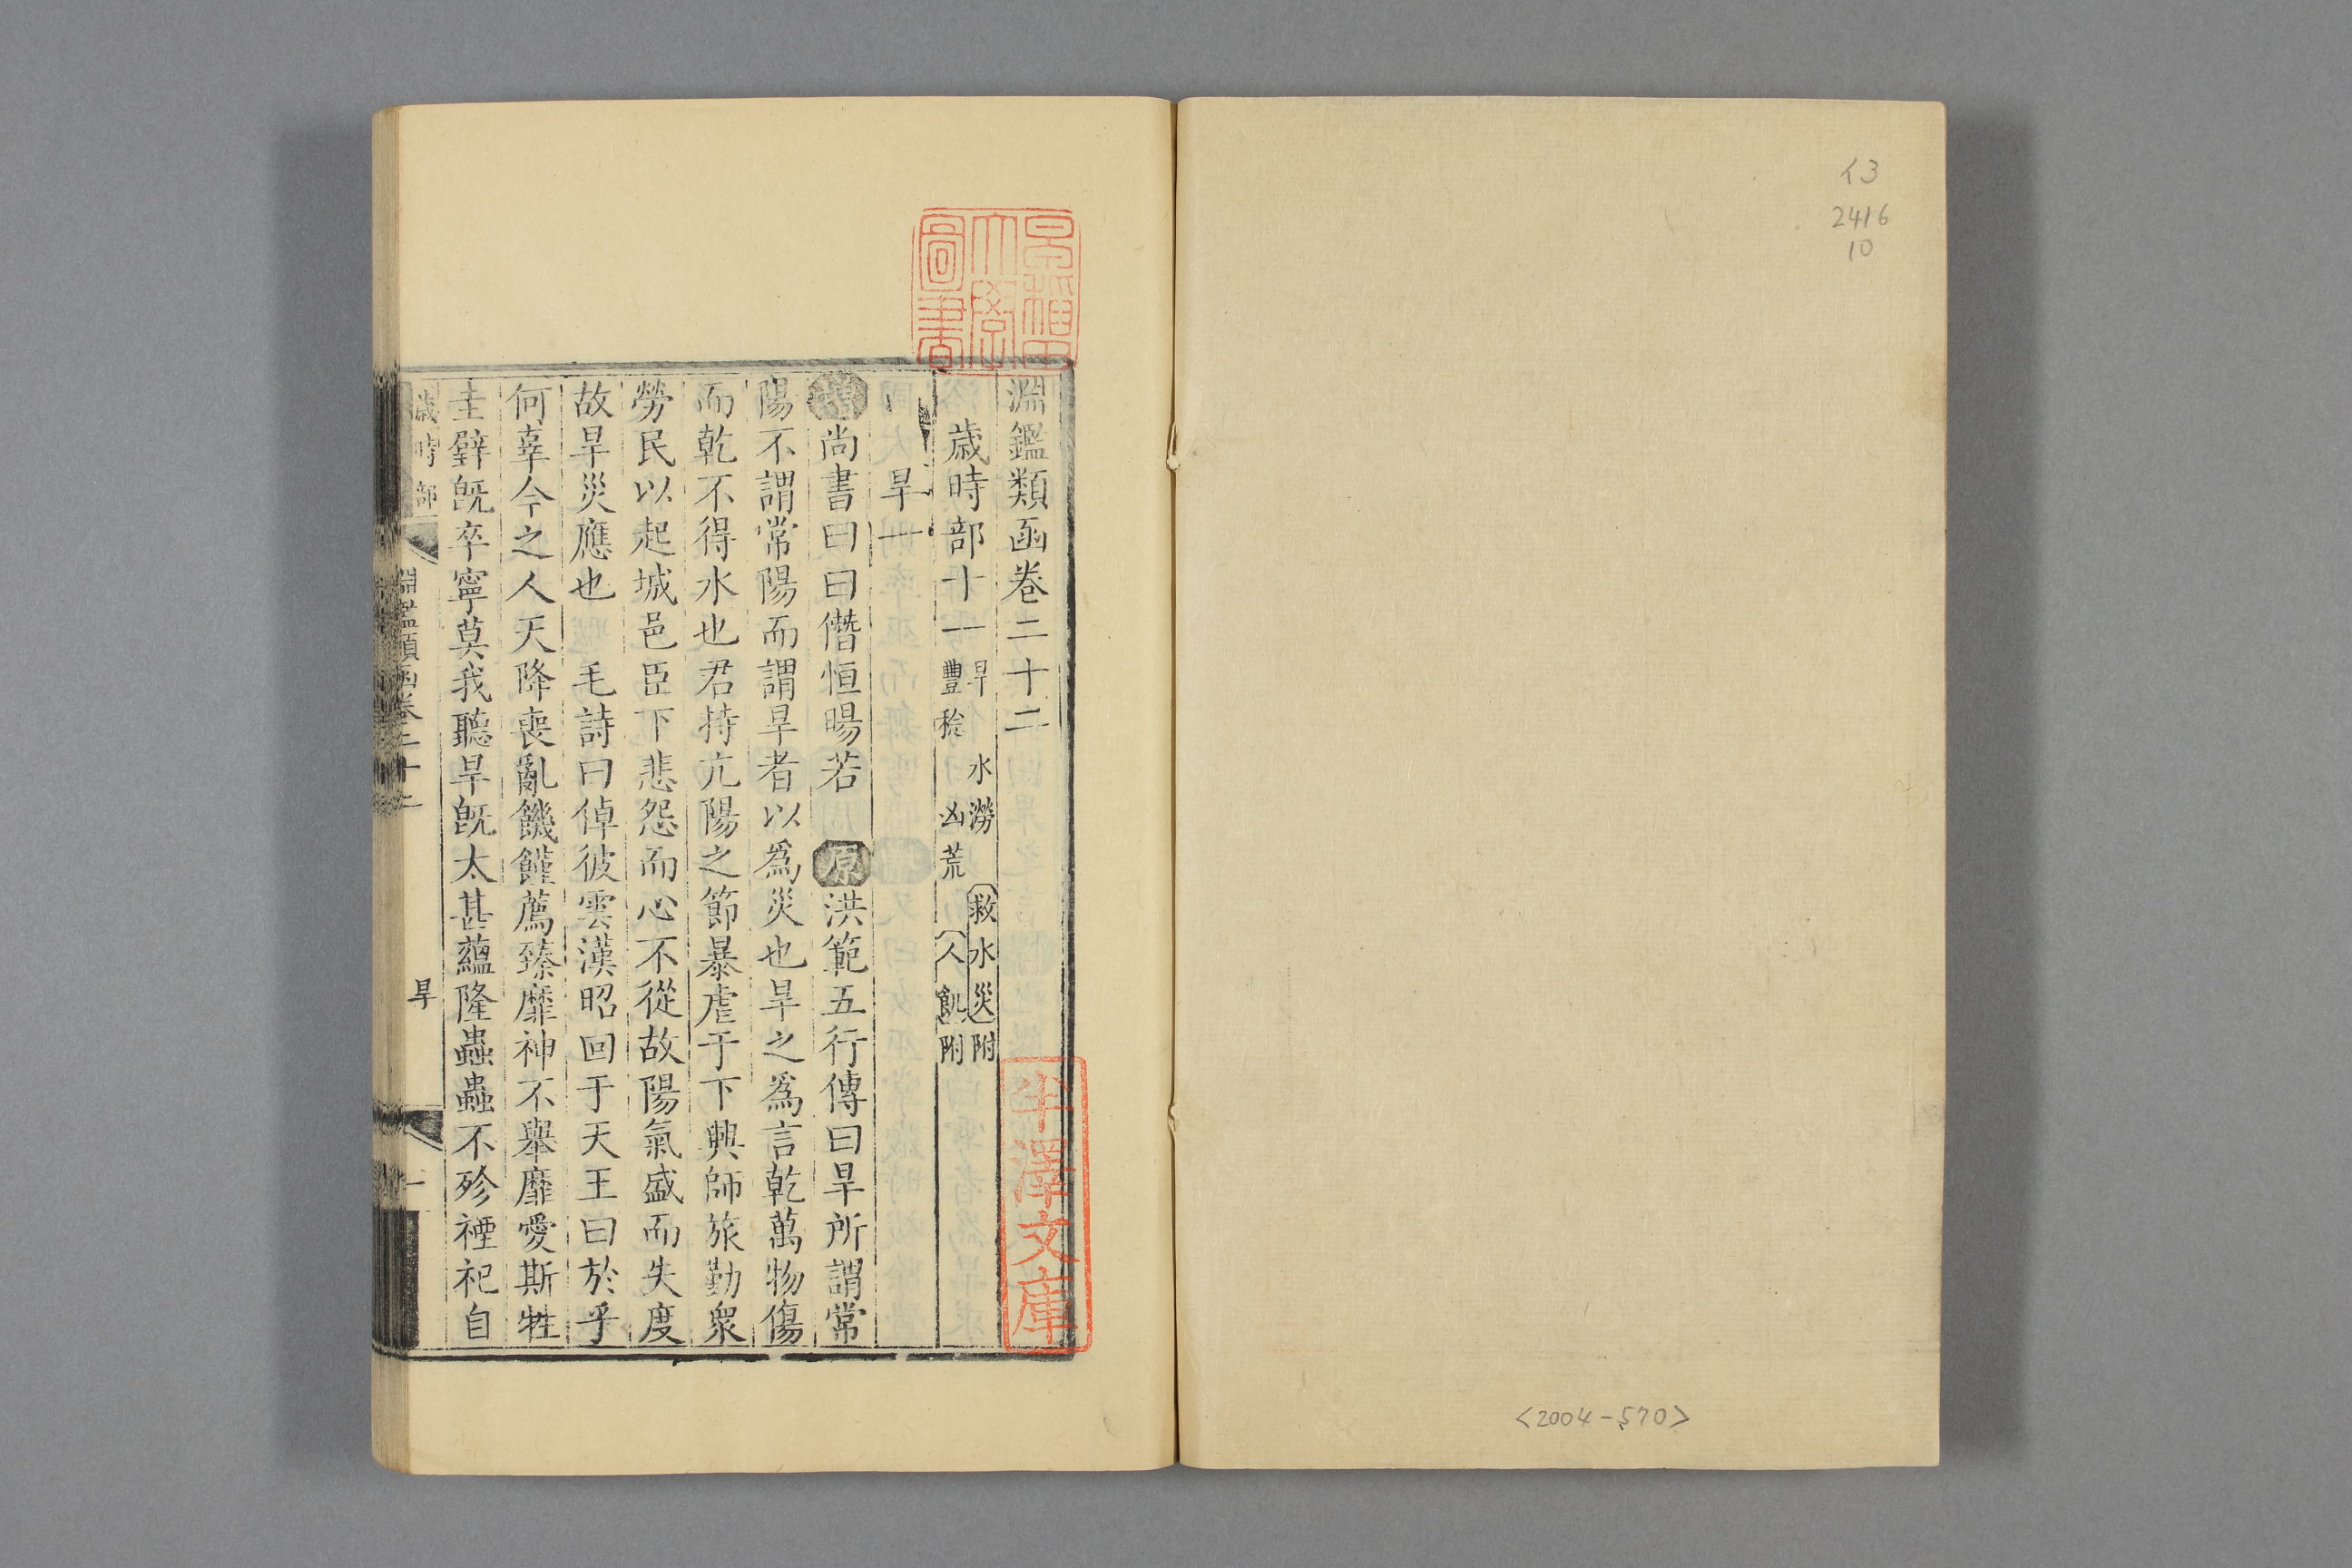 イ3
2416
10
<2004-570>
早稲田
大學
圖書
半澤文庫
淵鑑類函卷二十二
歲時部十一 旱 水澇 救水災附
豐稔 凶荒 人飢附
旱一
增尚書曰曰僭恒暘若 原洪範五行傳曰旱所謂常
陽不謂常陽而謂旱者以爲災也旱之爲言乾萬物傷
而乾不得水也君持亢陽之節暴虐于下興師旅勤衆
勞民以起城邑臣下悲怨而心不從故陽氣盛而失度
故旱災應也 毛詩曰倬彼雲漢昭回于天王曰於乎
何辜今之人天降喪亂饑饉薦臻靡神不舉靡愛斯牲
圭璧旣卒寧莫我聽旱旣太甚蘊隆蟲蟲不殄禋祀自
歲時部
淵鑑類函卷二十二
旱
一